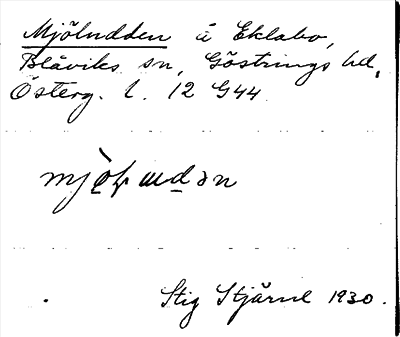 Mjölnudden å Eklabo,
Blåviks sn, Göstrings hd,
Österg. l. 12 G44
Stig Stjärne 1930.